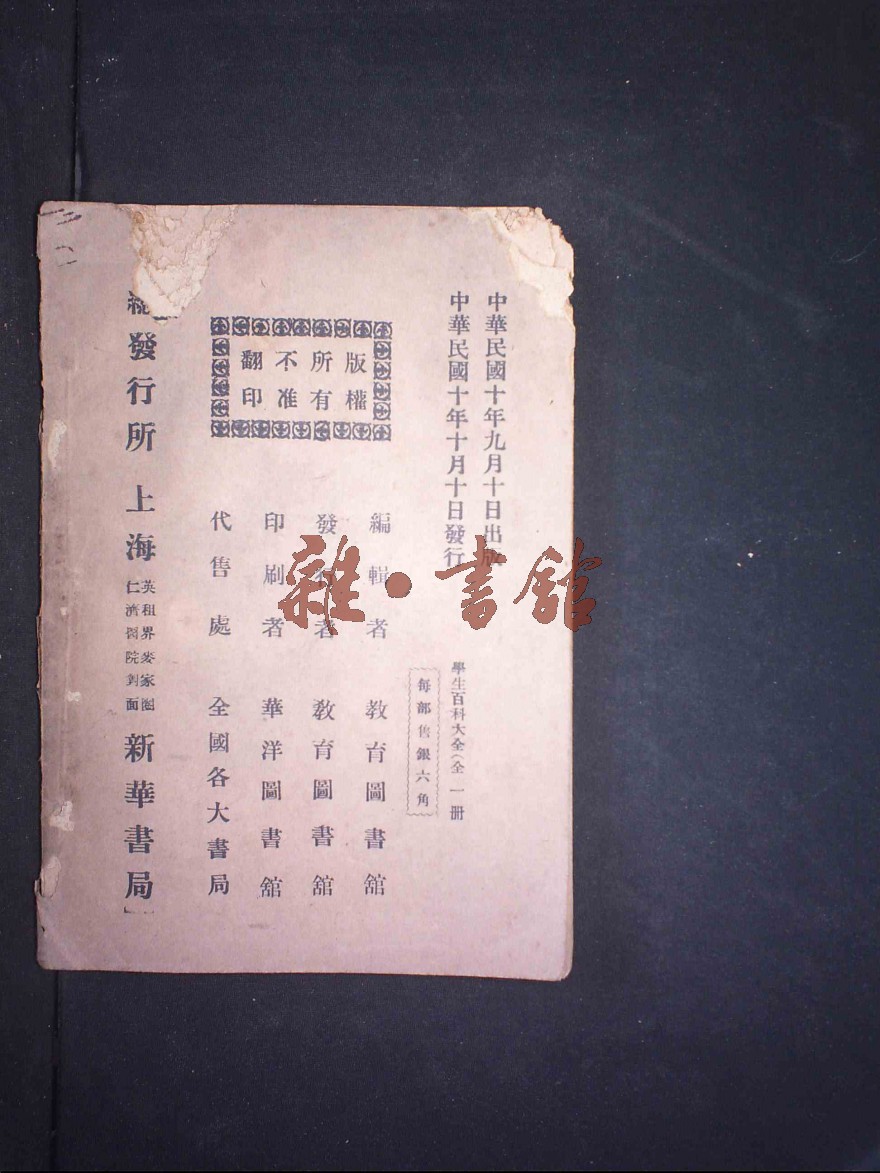 中華民國十年九月十日出版
中華民國十年十月十日發行
學生百科大全(全一册
每部售銀六角
版權
所有
不准
翻印
編輯者 教育圖書舘
發行者 教育圖書舘
印刷者 華洋圖書舘
代售處 全國各大書局
總發行所 上海 英租界麥家圈
仁濟醫院對面 新華書局
雜·書舘